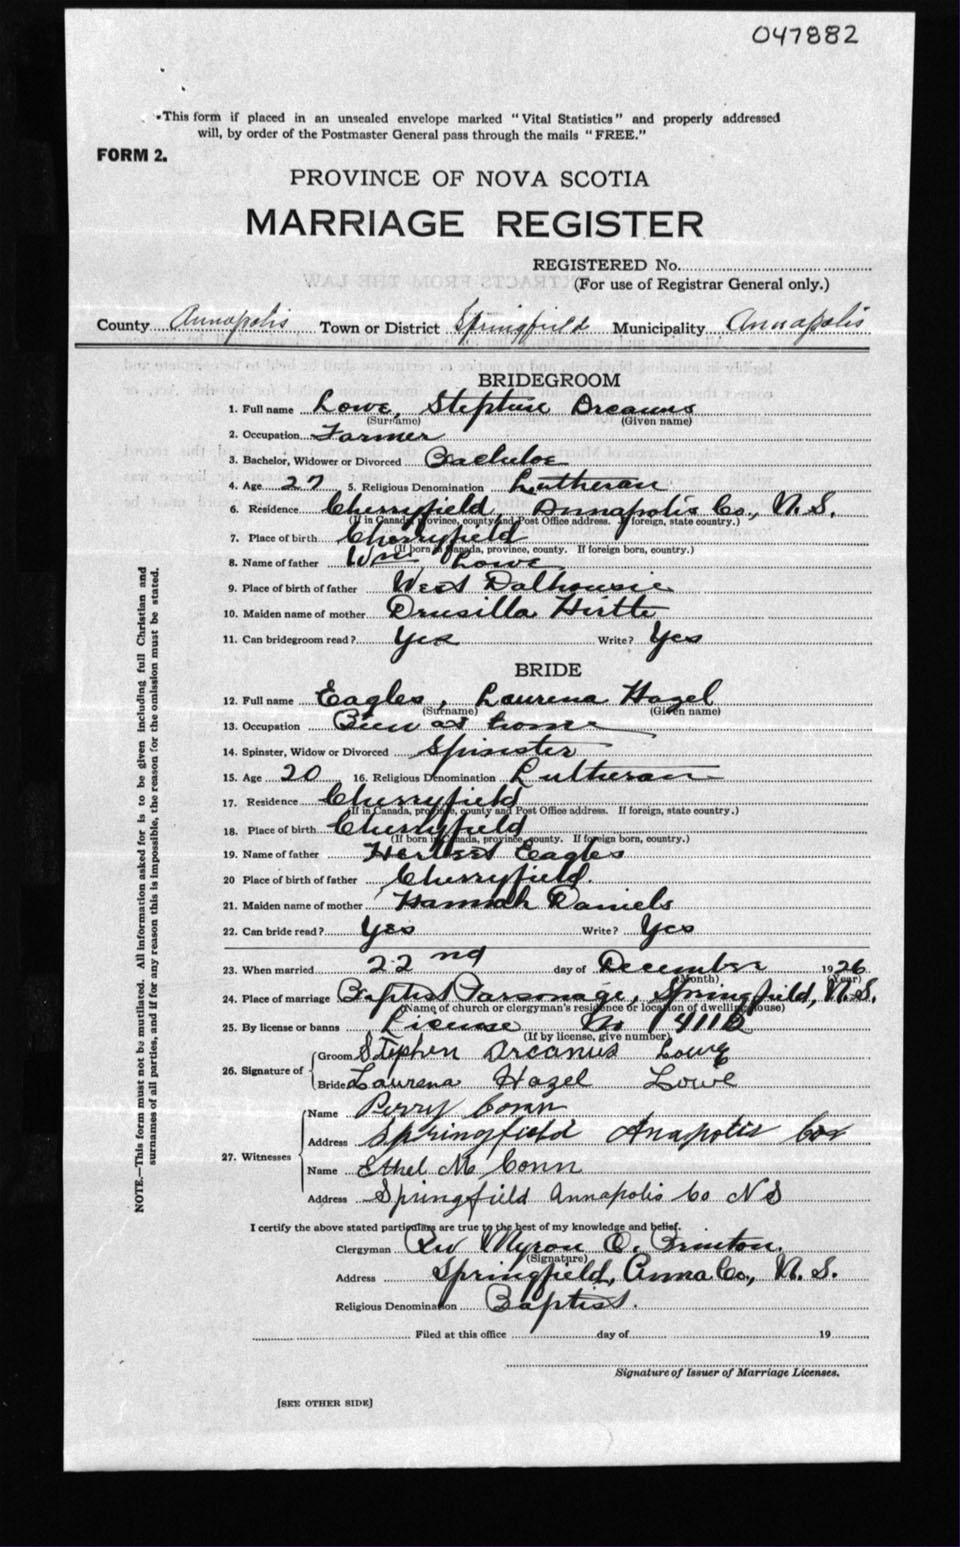 047882
This form if placed in an unsealed envelope marked "Vital Statistics" and properly addressed
will, by order of the Postmaster General pass through the mails "FREE."
FORM 2.
PROVINCE OF NOVA SCOTIA
MARRIAGE REGISTER
REGISTERED No.
(For use of Registrar General only.)
County Annapolis Town or District Springfield Municipality Annapolis
BRIDEGROOM
1. Full name Lowe, Stephen Arcanus
(Surname) (Given name)
2. Occupation Farmer
3. Bachelor, Widower or Divorced Bachelor
4. Age 27 5. Religious Denomination Lutheran
6. Residence Cherryfield, Annapolis Co., N.S.
(If in Canada, province, county and Post Office address. If foreign, state country.)
7. Place of birth Cherryfield
(If born in Canada, province, county. If foreign born, country.)
8. Name of father Wm Lowe
9. Place of birth of father West Dalhousie
10. Maiden name of mother Drusilla Hirtle
11. Can bridegroom read? Yes Write? Yes
BRIDE
12. Full name Eagles, Laurena Hazel
(Surname) (Given name)
13. Occupation at home
14. Spinster, Widow or Divorced Spinster
15. Age 20 16. Religious Denomination Lutheran
17. Residence Cherryfield
(If in Canada, province, county and Post Office address. If foreign, state country.)
18. Place of birth Cherryfield
(If born in Canada, province, county. If foreign born, country.)
19. Name of father Herbert Eagles
20 Place of birth of father Cherryfield.
21. Maiden name of mother Hannah Daniels
22. Can bride read? Yes Write? Yes
23. When married 22nd day of December 1926
(Month) (Year)
24. Place of marriage Baptist Parsonage, Springfield, N.S.
(Name of church or clergyman's residence or location of dwelling house)
25. By license or banns License No
(If by license, give number)
26. Signature of
Groom Stephen Arcanus Lowe
Bride Laurena Hazel Lowe
27. Witnesses
Name Perry Conn
Address Springfield Anapolis Co
Name Ethel M Conn
Address Springfield Annapolis Co N S
I certify the above stated particulars are true to the best of my knowledge and belief.
Clergyman Rev Myron O. Brinton.
(Signature)
Address Springfield, Anna Co., N. S.
Religious Denomination Baptist.
Filed at this office day of 19
Signature of Issuer of Marriage Licenses.
[SEE OTHER SIDE]
NOTE.—This form must not be mutilated. All information asked for is to be given including full Christian and
surnames of all parties, and if for any reason this is impossible, the reason for the omission must be stated.